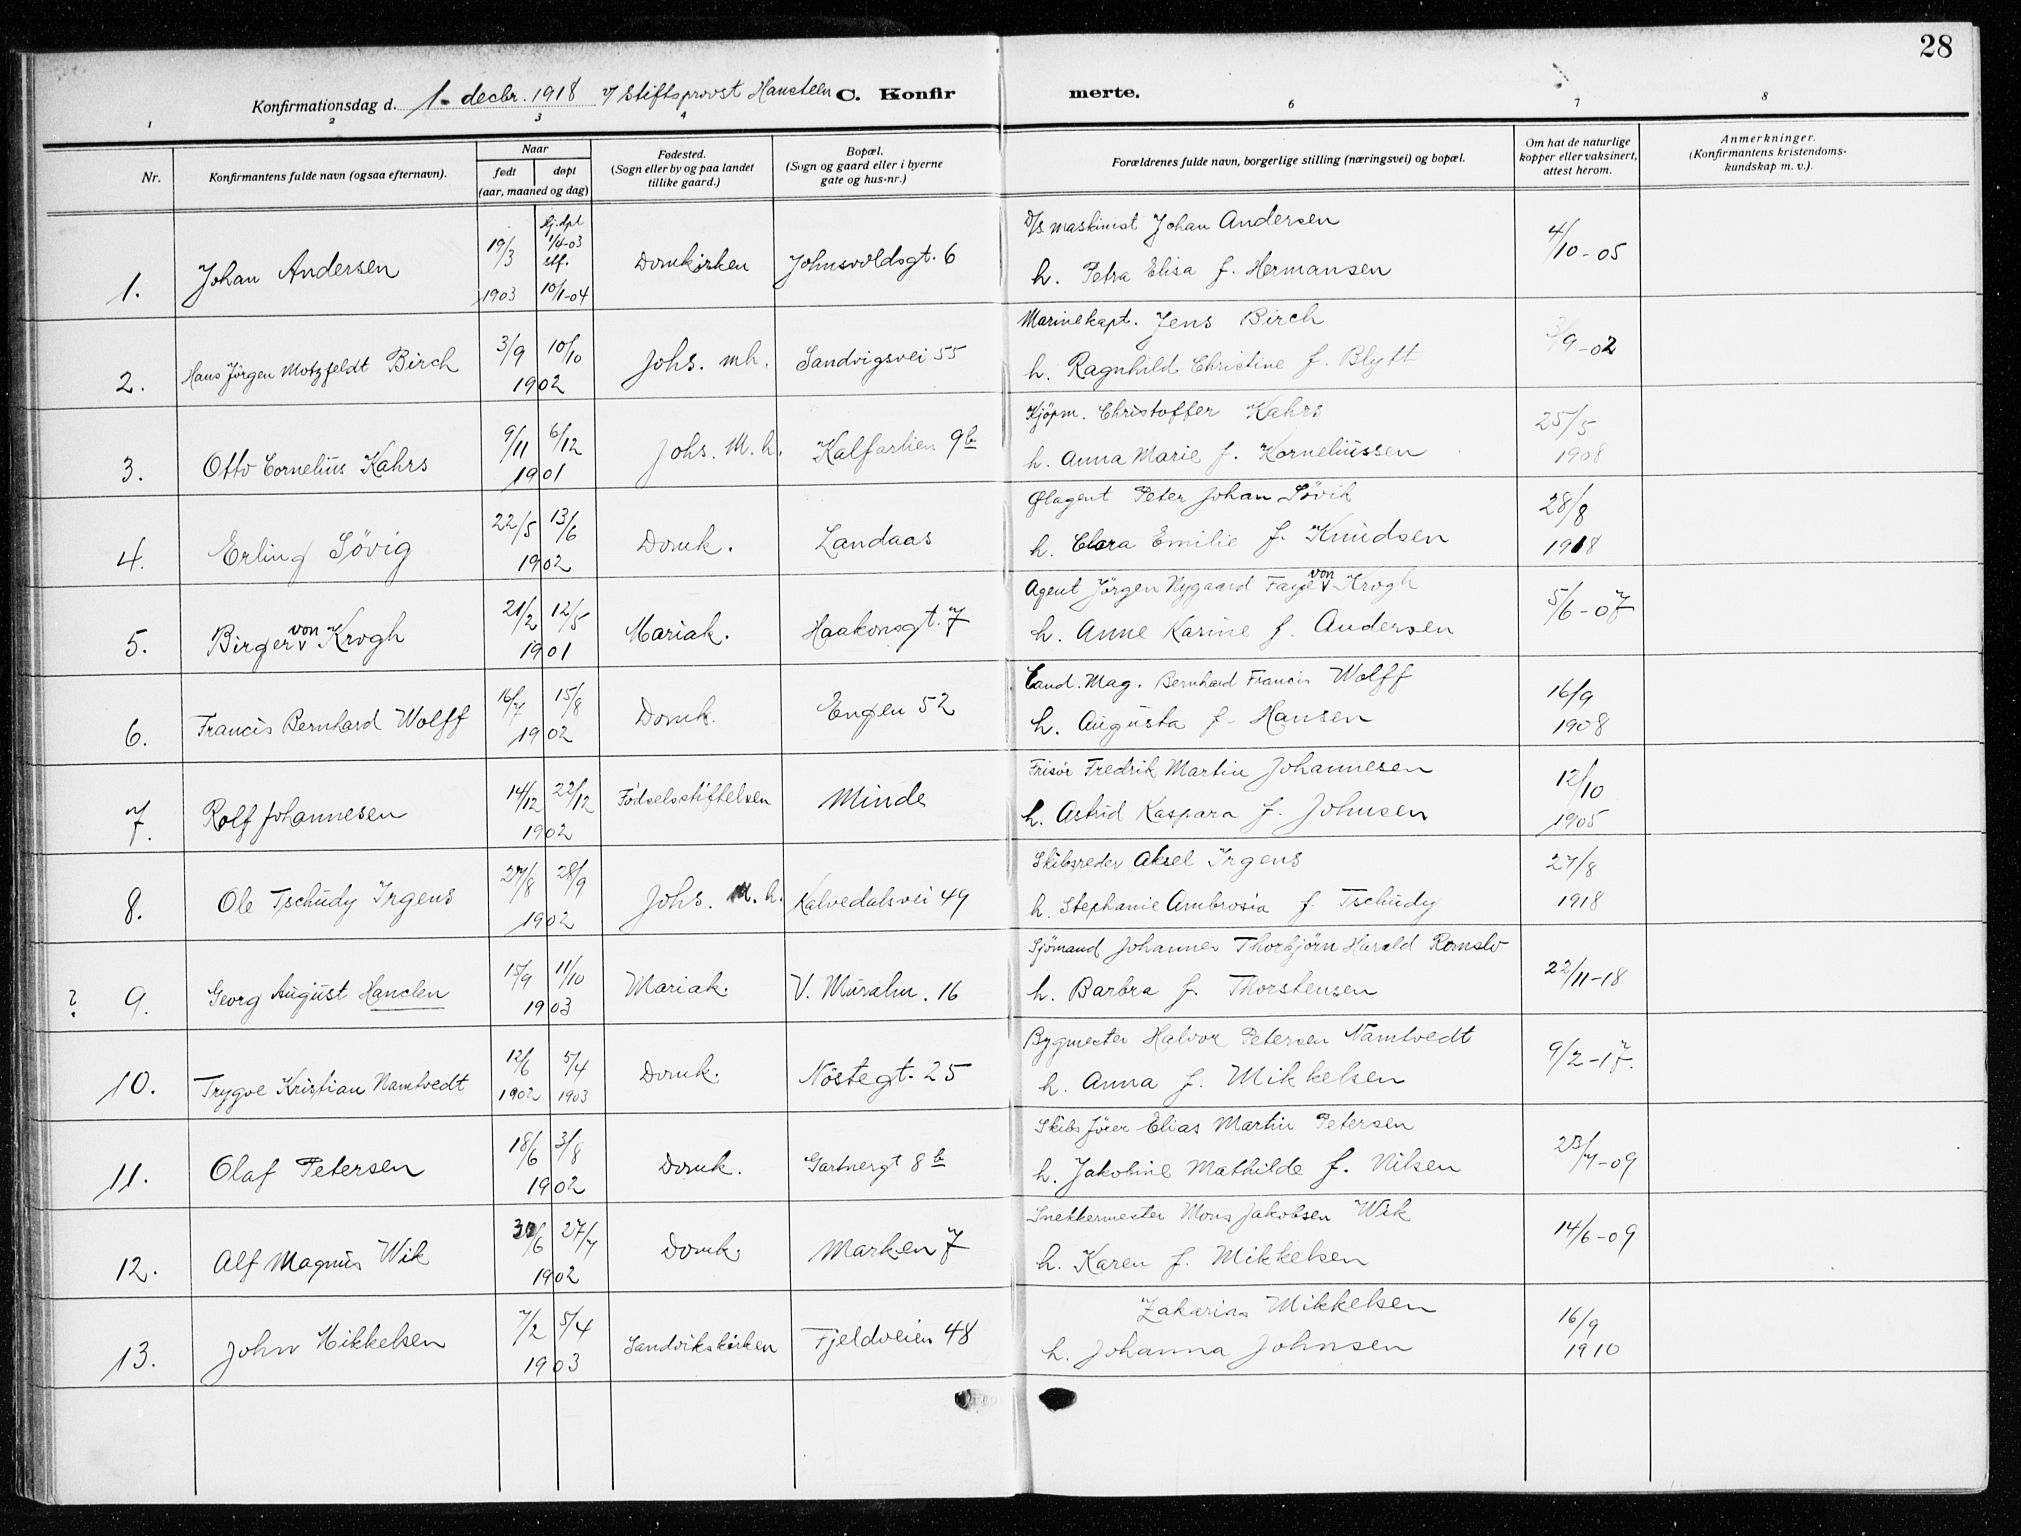 28
Konfirmationsdag d. 1. decbr. 1918 v/ Stiftsprovst Hansteen C. Konfir merte.
1 2 3 4 6 7 8
Nr.
Konfirmantens fulde navn (ogsaa efternavn).
Naar
født døpt
(aar, maaned og dag)
Fødested.
(Sogn eller by og paa landet
tillike gaard.)
Bopæl.
(Sogn og gaard eller i byerne
gate og hus-nr.)
Forældrenes fulde navn, borgerlige stilling (næringsvei) og bopæl.
Om hat de naturlige
kopper eller vaksinert,
attest herom.
Anmerkninger.
(Konfirmantens kristendoms-
kundskap m. v.).
1. Johan Andersen 19/3 1903 hj.dpt 1/4-03 stf. 10/1-04 Domkirken Johnsvoldsgt. 6
D/s maskinist Johan Andersen
h. Petra Elisa f. Hermansen
4/10-05
2. Hans Jörgen Motzfeldt Birch 3/9 10/10 1902 Johs. m.h. Sandvigsvei 55
Marinekapt. Jens Birch
h. Ragnhild Christine f. Blytt
3/9-02
3. Otto Cornelius Kahrs 9/11 6/12 1901 Johs. M. h. Kalfarlien 9b
Kjöpm. Christoffer Kahrs
h. Anna Marie f. Korneliussen
25/5
1908
4. Erling Sövig 22/5 13/6 1902 Domk. Landaas
Ølagent Peter Johan Sövik
h. Clara Emilie f. Knudsen
28/8
1918
5. Birger von Krogh 21/2 12/5 1901 Mariak. Haakonsgt. 7
Agent Jörgen Nygaard Faye von Krogh
h. Anne Karine f. Andersen
5/6-07
6. Francis Bernhard Wolff 16/7 15/8 1902 Domk. Engen 52
Cand. Mag. Bernhard Francis Wolff
h. Augusta f. Hansen
16/9
1908
7. Rolf Johannesen 14/12 22/12 1902 Födselsstiftelsen Minde
Frisör Fredrik Martin Johannesen
h. Astrid Kaspara f. Johnsen
12/10
1905
8. Ole Tschudy Irgens 27/8 28/9 1902 Johs. M. h. Kalvedalsvei 49
Skibsreder Aksel Irgens
h. Stephanie Ambrosia f. Tschudy
27/8
1918
? 9. Georg August 15/9 11/10 1903 Mariak. V. Muralm. 16
Sjömand Johannes Thorbjörn Harald Romslo
h. Barbra f. Thorstensen
22/11-18
10. Trygve Kristian Namtvedt 12/6 1902 5/4 1903 Domk. Nöstegt. 25
Bygmester Halvor Petersen Namtvedt
h. Anna f. Mikkelsen
9/2-17.
11. Olaf Petersen 18/6 3/8 1902 Domk. Gartnergt 8b
Skibsförer Elias Martin Petersen
h. Jakobine Mathilde f. Nilsen
23/7-09
12. Alf Magnus Wik 30/6 27/7 1902 Domk. Marken 7
Snekkermester Mons Jakobsen Wik
h. Karen f. Mikkelsen
14/6-09
13. John Mikkelsen 7/2 5/4 1903 Sandvikskirken Fjeldveien 48
Zakarias Mikkelsen
h. Johanna Johnsen
16/9
1910